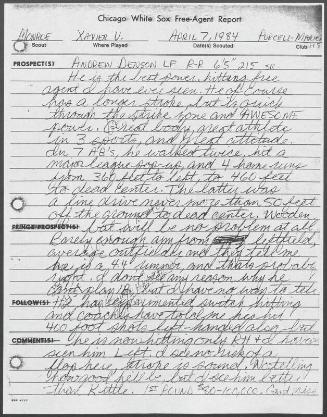 Chicago White Sox Free-Agent Report
Monroe Xavier U. April 7, 1984 Purcell-Marian
Scout Where Played Date(s) Scouted Club H.S.
PROSPECT(S) Andrew Denson LF R-R 6'5" 215 SR.
He is the best power hitting free
agent I have ever seen. He of course
has a longer stroke, but is quick
through the strike zone and AWESOME
power. Great body, great athlete
in 3 sports, and great attitude.
In 7 AB's, he walked twice, hit a
major league pop-up, and 4 home runs
from 360 foot to left, to 460 feet
to dead center. The latter was
a line drive never more than 50 feet
off the ground to dead center. Wooden
FRINGE PROSPECT(S) but will be no problem at all.
Barely enough arm from left field,
average outfielder and they tell me
he is a runner and that's prob'ably
right. I don't see any reason why he
can't play 1B, but I have no way to tell.
FOLLOW(S) He has experimented switch hitting
and coaches have told me he's hit
400 foot shots left-handed also, but
COMMENT(S) he is now hitting only RH & I haven't
seen him Left. I see no risk of a
flop here, stroke is sound. No telling
how good he'll be, but I see him better
than Kittle. 1st Round